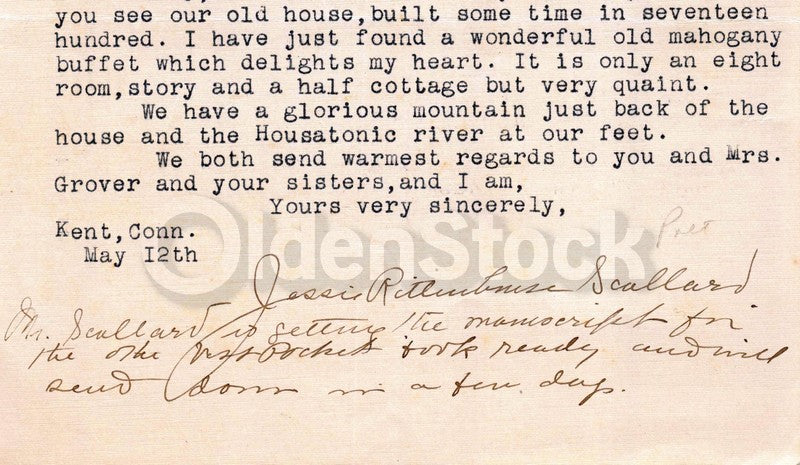 you see our old house,built some time in seventeen
hundred. I have just found a wonderful old mahogany
buffet which delights my heart. It is only an eight
room,story and a half cottage but very quaint.
We have a glorious mountain just back of the
house and the Housatonic river at our feet.
We both send warmest regards to you and Mrs.
Grover and your sisters,and I am,
Yours very sincerely,
Kent,Conn.
May I2th
OldenStock
Poet
Jessie Rittenhouse Scollard
Mr. Scollard is getting the manuscript for
the other vest pocket book ready and will
send down in a few days.